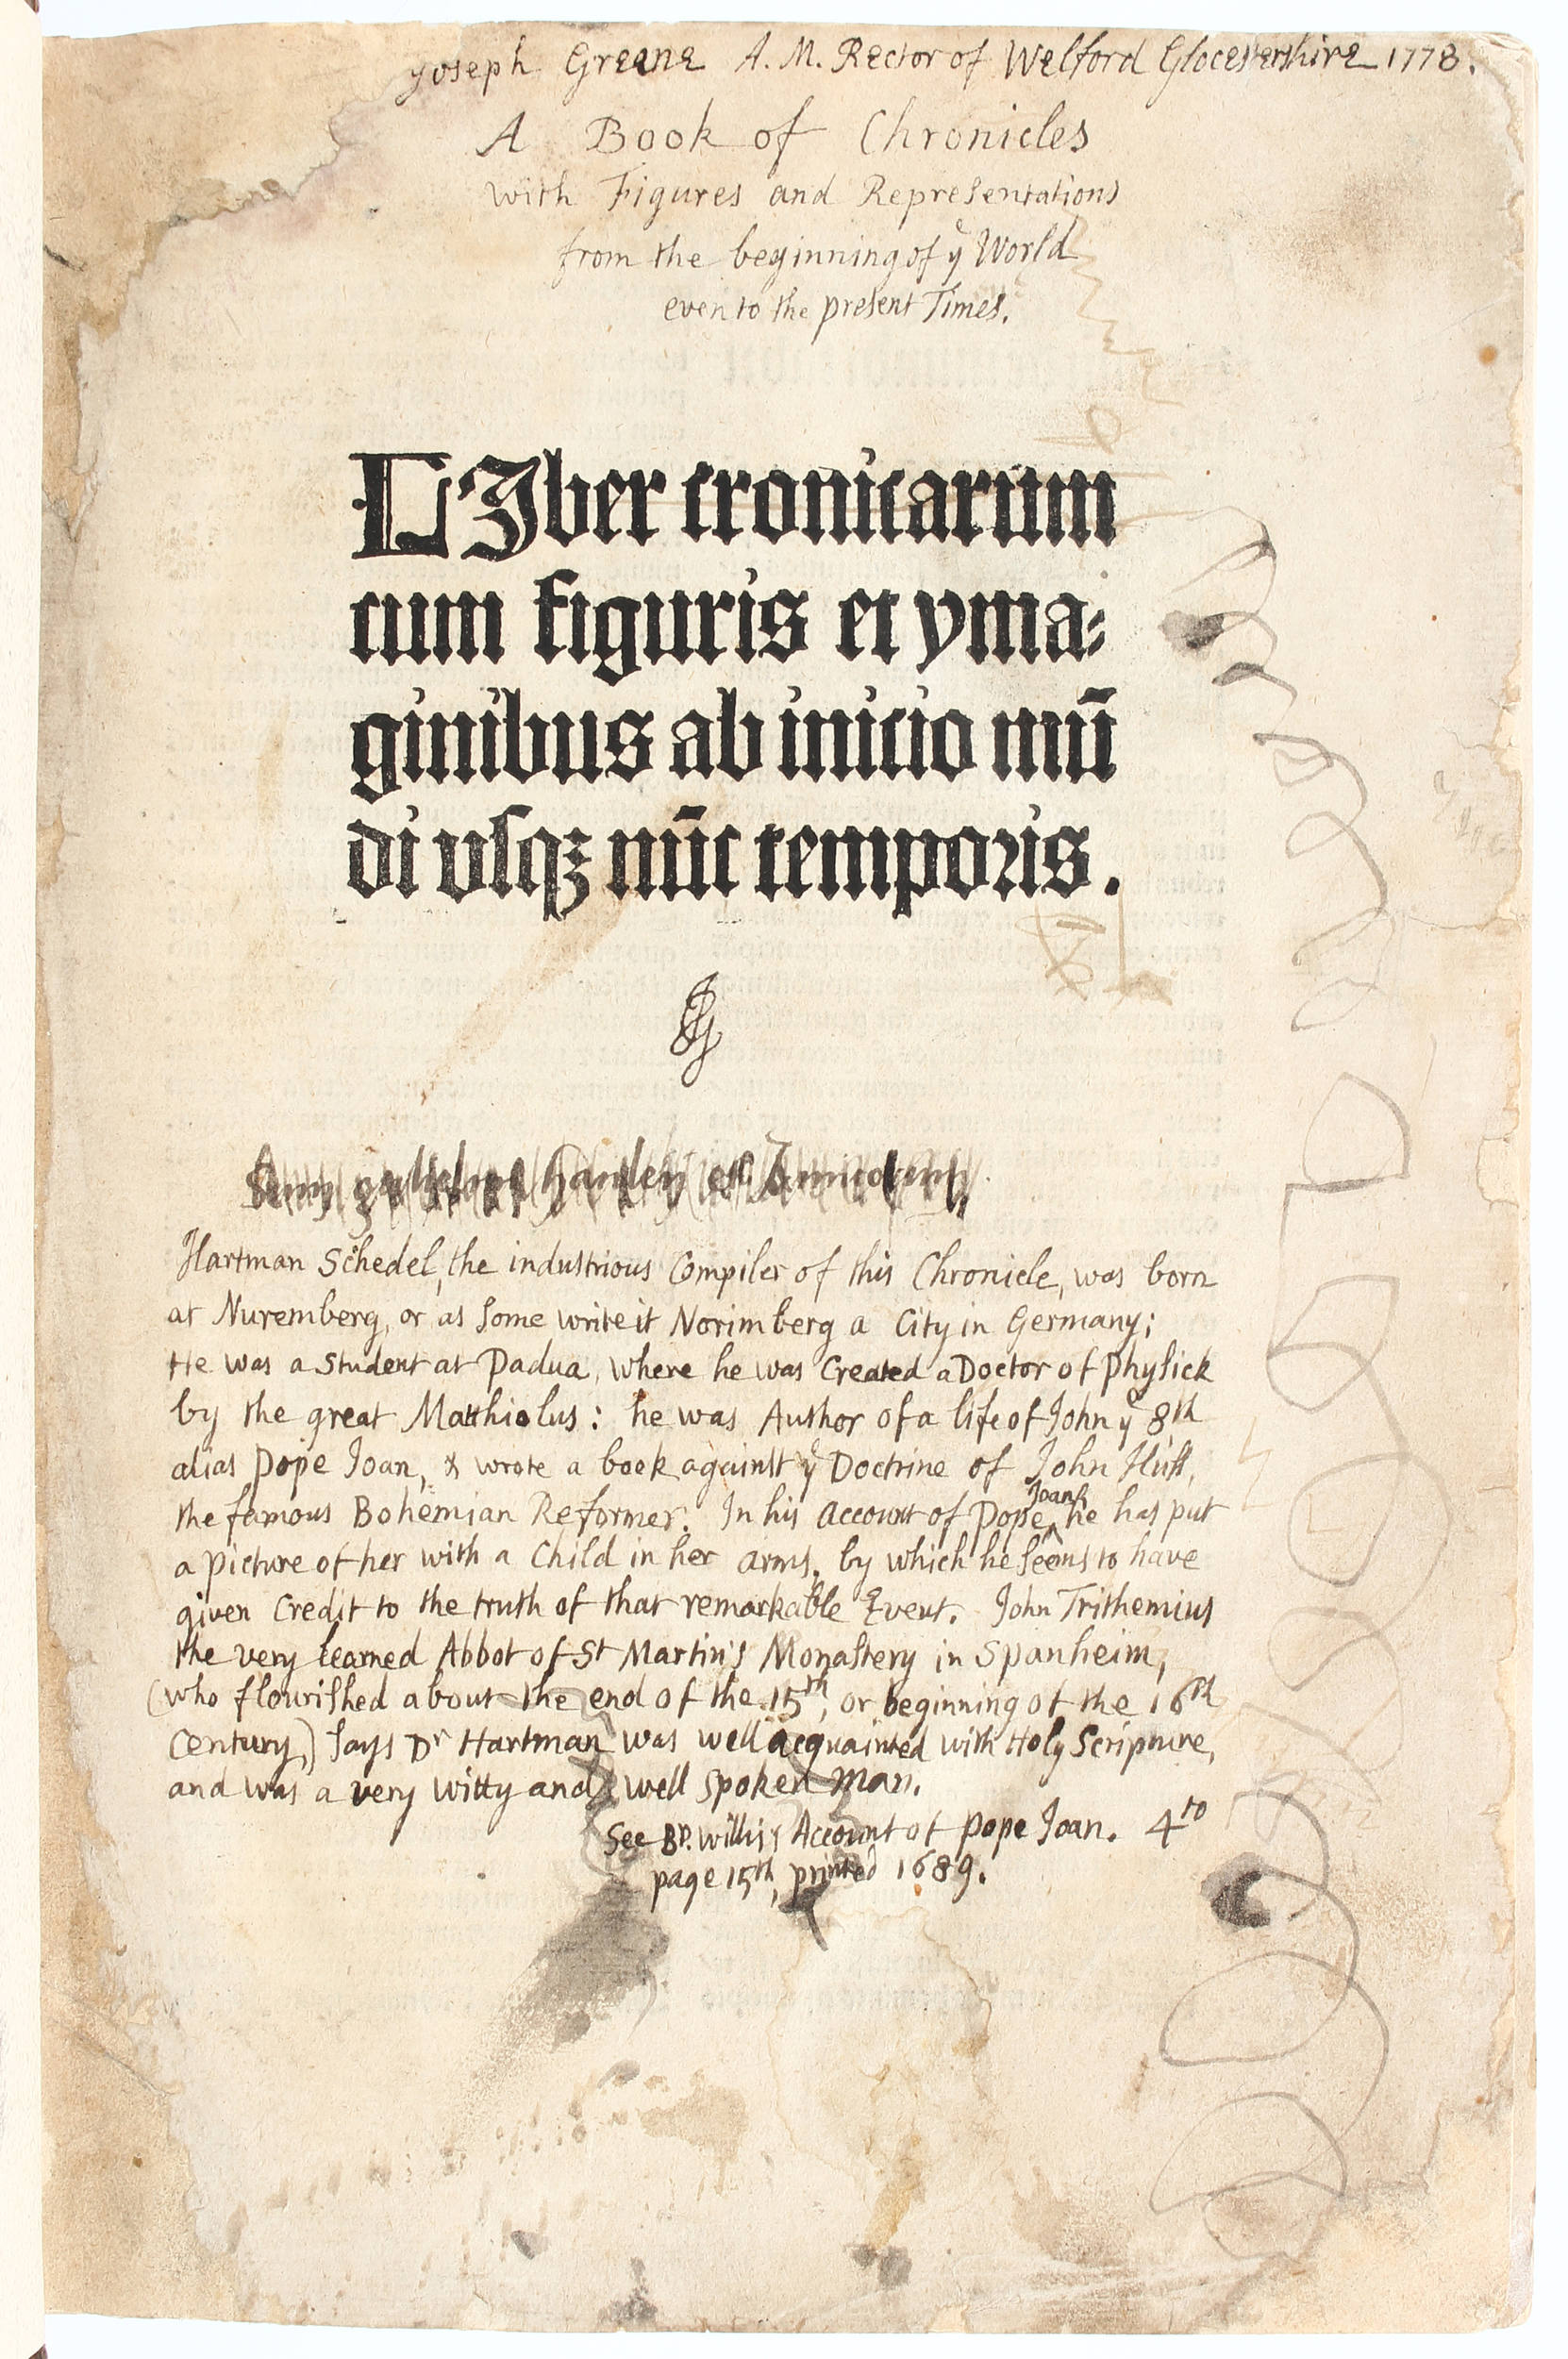 Joseph Greene A. M. Rector of Welford Glocestershire 1778.
A Book of Chronicles
with Figures and Repreſentations
from the beginning of yᵉ World
even to the preſent Times.
LIber cronicarum
cum figuris et yma⸗
ginibus ab inicio mū
di vſqꝫ nūc temporis.
Hartman Schedel, the induſtrious Compiler of this Chronicle, was born
at Nuremberg, or as ſome write it Norimberg a City in Germany;
He was a Student at Padua, where he was Created a Doctor of Phyſick
by the great Matthiolus: he was Author of a life of John yᵉ 8th
alias Pope Joan, & wrote a book againſt yᵉ Doctrine of John Huſſ,
the famous Bohemian Reformer. In his Account of Pope Joan he has put
a picture of her with a Child in her arms, by which he ſeems to have
given Credit to the truth of that remarkable Event. John Trithemius
the very learned Abbot of St Martin's Monaſtery in Spanheim,
(who flouriſhed about the end of the 15th, or beginning of the 16th
Century,) ſays Dr Hartman was well acquainted with Holy Scripture,
and was a very witty and well ſpoken Man.
See Bp. Account of Pope Joan. 4to
page 15th, printed 1689.